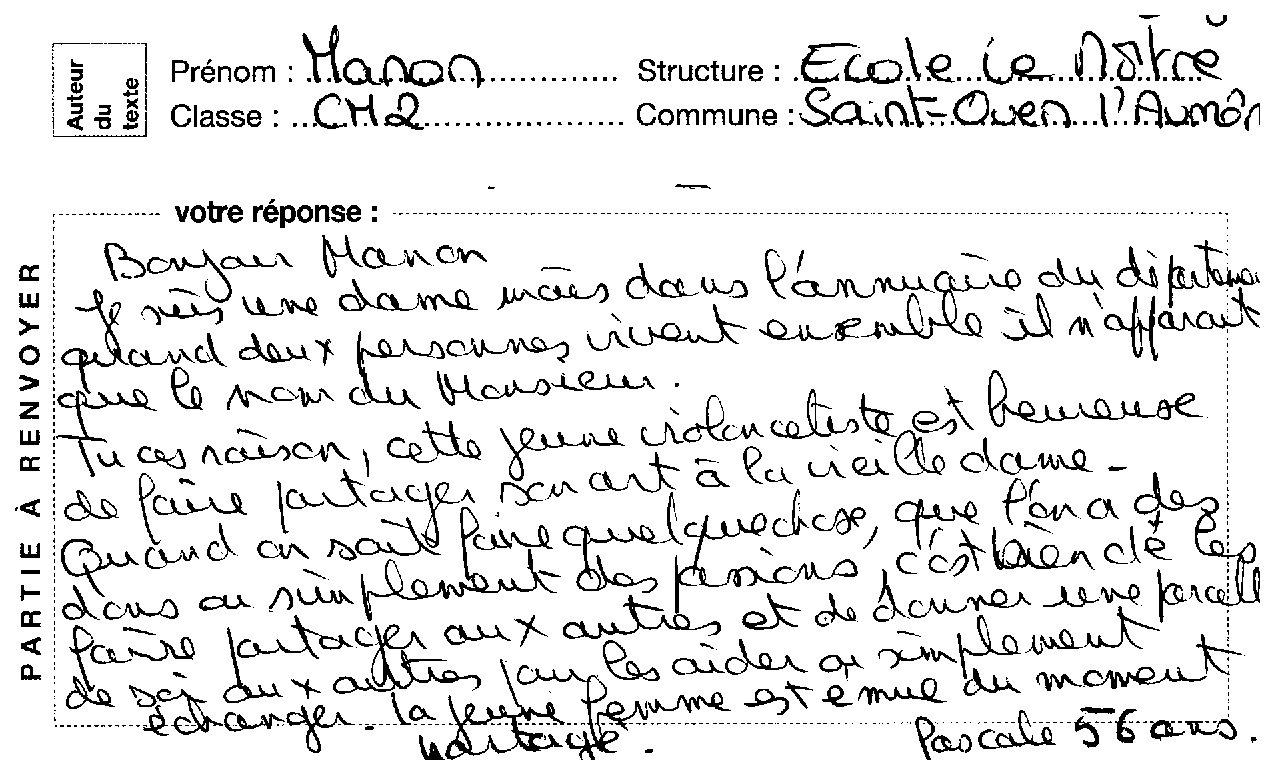 Auteur du texte
Prénom : Manon Structure : Ecole Le Nôtre
Classe : CM2 Commune : Saint-Ouen l'Aumôn
PARTIE À RENVOYER
votre réponse :
Bonjour Manon
Je suis une dame mais dans l'annuaire du départeme
quand deux personnes vivent ensemble il n'apparait
que le nom du Monsieur.
Tu as raison, cette jeune violonceliste est heureuse
de faire partager son art à la vieille dame -
Quand on sait faire quelque chose, que l'on a des
dons ou simplement des passions, c'est bien de les
faire partager aux autres et de donner une parcelle
de soi aux autres pour les aider ou simplement
échanger. La jeune femme est émue du moment
partagé.
Pascale 56 ans.